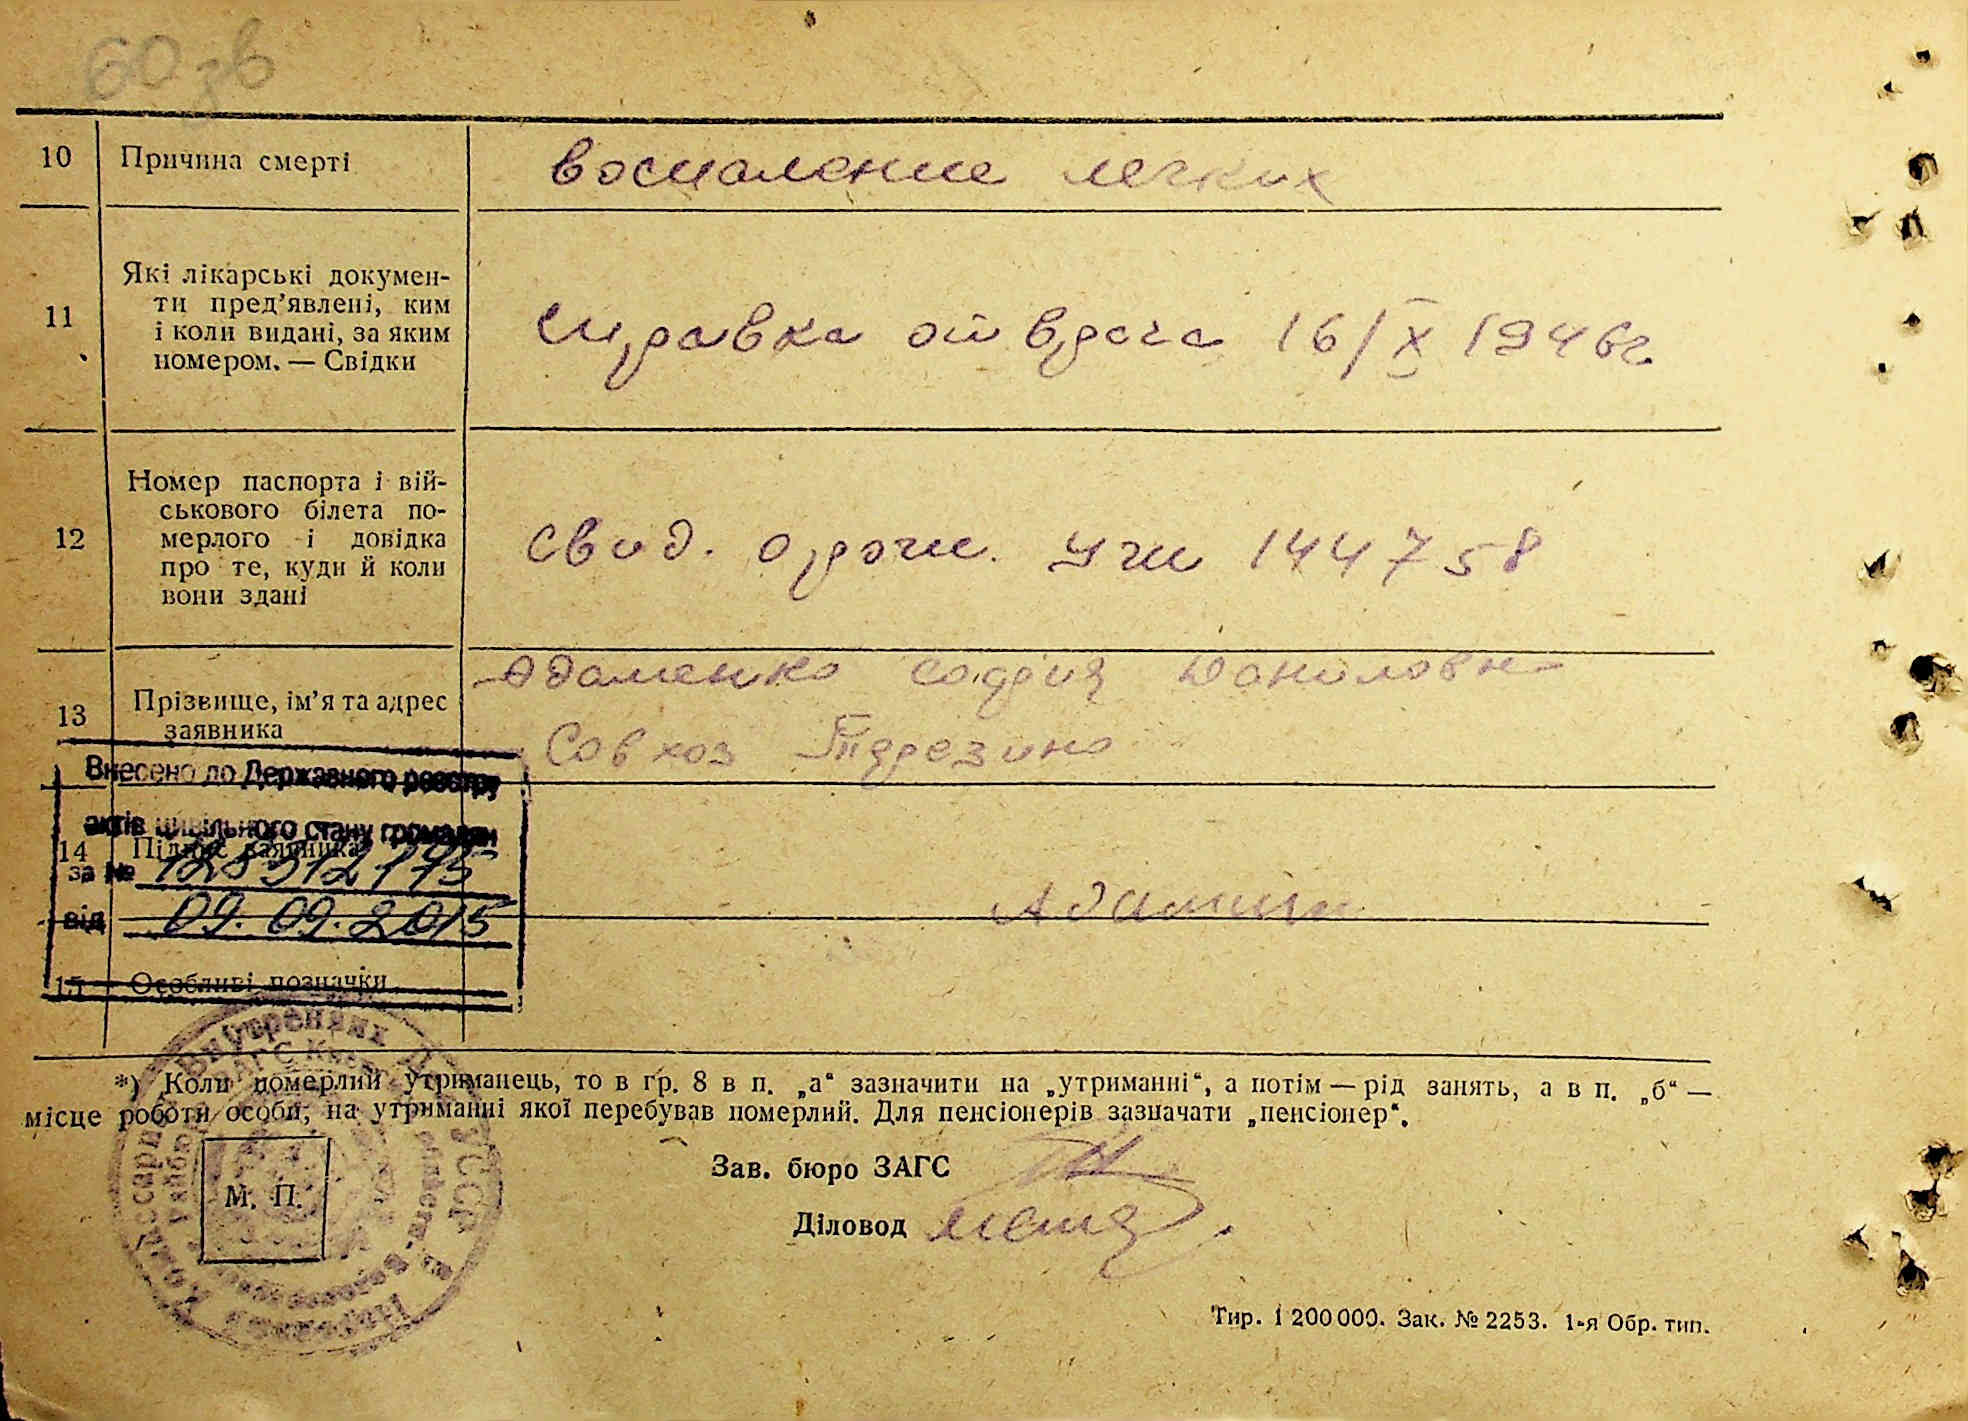 60 зв
10 Причина смерті воспаление легких
11 Які лікарські докумен-
ти пред’явлені, ким
і коли видані, за яким
номером. — Свідки
справка от врача 16/X 1946г
12 Номер паспорта і вій-
ськового білета по-
мерлого і довідка
про те, куди й коли
вони здані
свид. о рожд. 144758
13 Прізвище, ім’я та адрес
заявника
Адаменко София Даниловн
Совхоз Терезино
Внесено до Державного реєстру
актів цивільного стану громадян
14 Підпис заявника
за №
від 09.09.2015
15 Особливі позначки
*) Коли померлий утриманець, то в гр. 8 в п. „а“ зазначити на „утриманні“, а потім — рід занять, а в п. „б“ —
місце роботи особи, на утриманні якої перебував померлий. Для пенсіонерів зазначати „пенсіонер“.
Зав. бюро ЗАГС
М. П.
Діловод
Тир. 1 200 000. Зак. № 2253. 1-я Обр. тип.